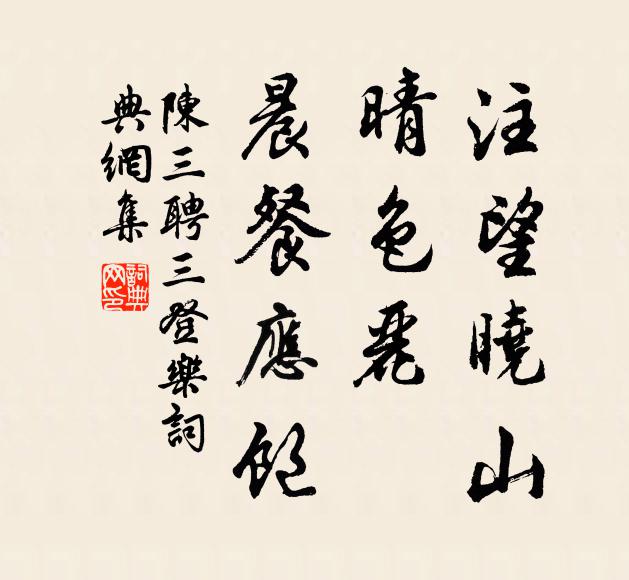 注望曉山
晴色麗
晨餐應飽
陳三聘三登樂詞
典網集
詞典网印